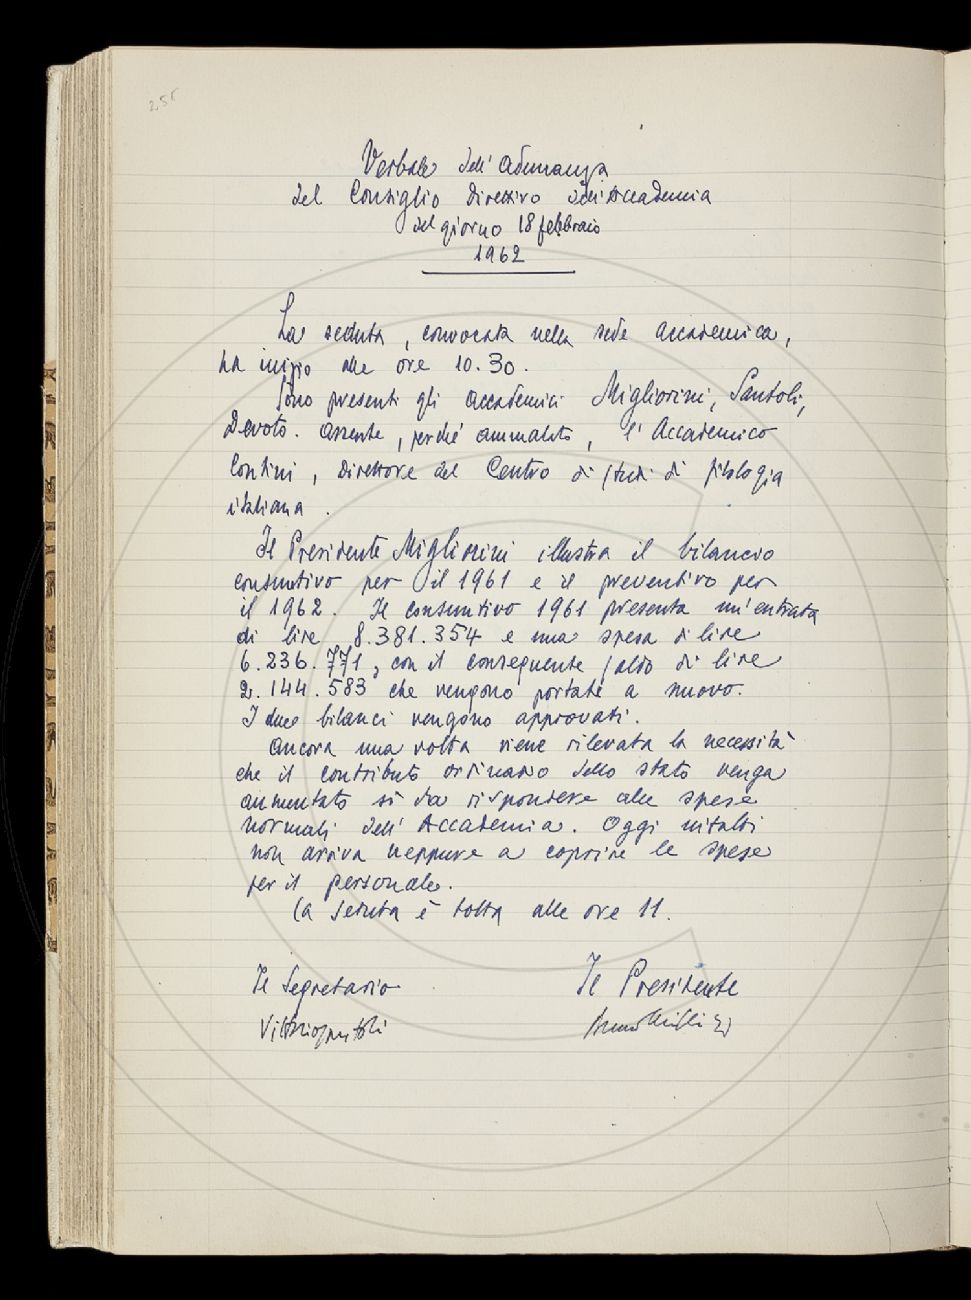 255
Verbale dell'Adunanza
del Consiglio Direttivo dell'Accademia
del giorno 18 febbraio
1962
La seduta, convocata nella sede accademica,
ha inizio alle ore 10.30.
Sono presenti gli Accademici Migliorini, Santoli,
Devoto. Assente, perché ammalato, l'Accademico
Contini, Direttore del Centro di studi di filologia
italiana.
Il Presidente Migliorini illustra il bilancio
consuntivo per il 1961 e il preventivo per
il 1962. Il consuntivo 1961 presenta un'entrata
di lire 8.381.354 e una spesa di lire
6.236.771, con il conseguente saldo di lire
2.144.583 che vengono portate a nuovo.
I due bilanci vengono approvati.
Ancora una volta viene rilevata la necessità
che il contributo ordinario dello stato venga
aumentato sì da rispondere alle spese
normali dell'Accademia. Oggi infatti
non arriva neppure a coprire le spese
per il personale.
La seduta è tolta alle ore 11.
Il Segretario Il Presidente
Vittorio Santoli Bruno Migliorini